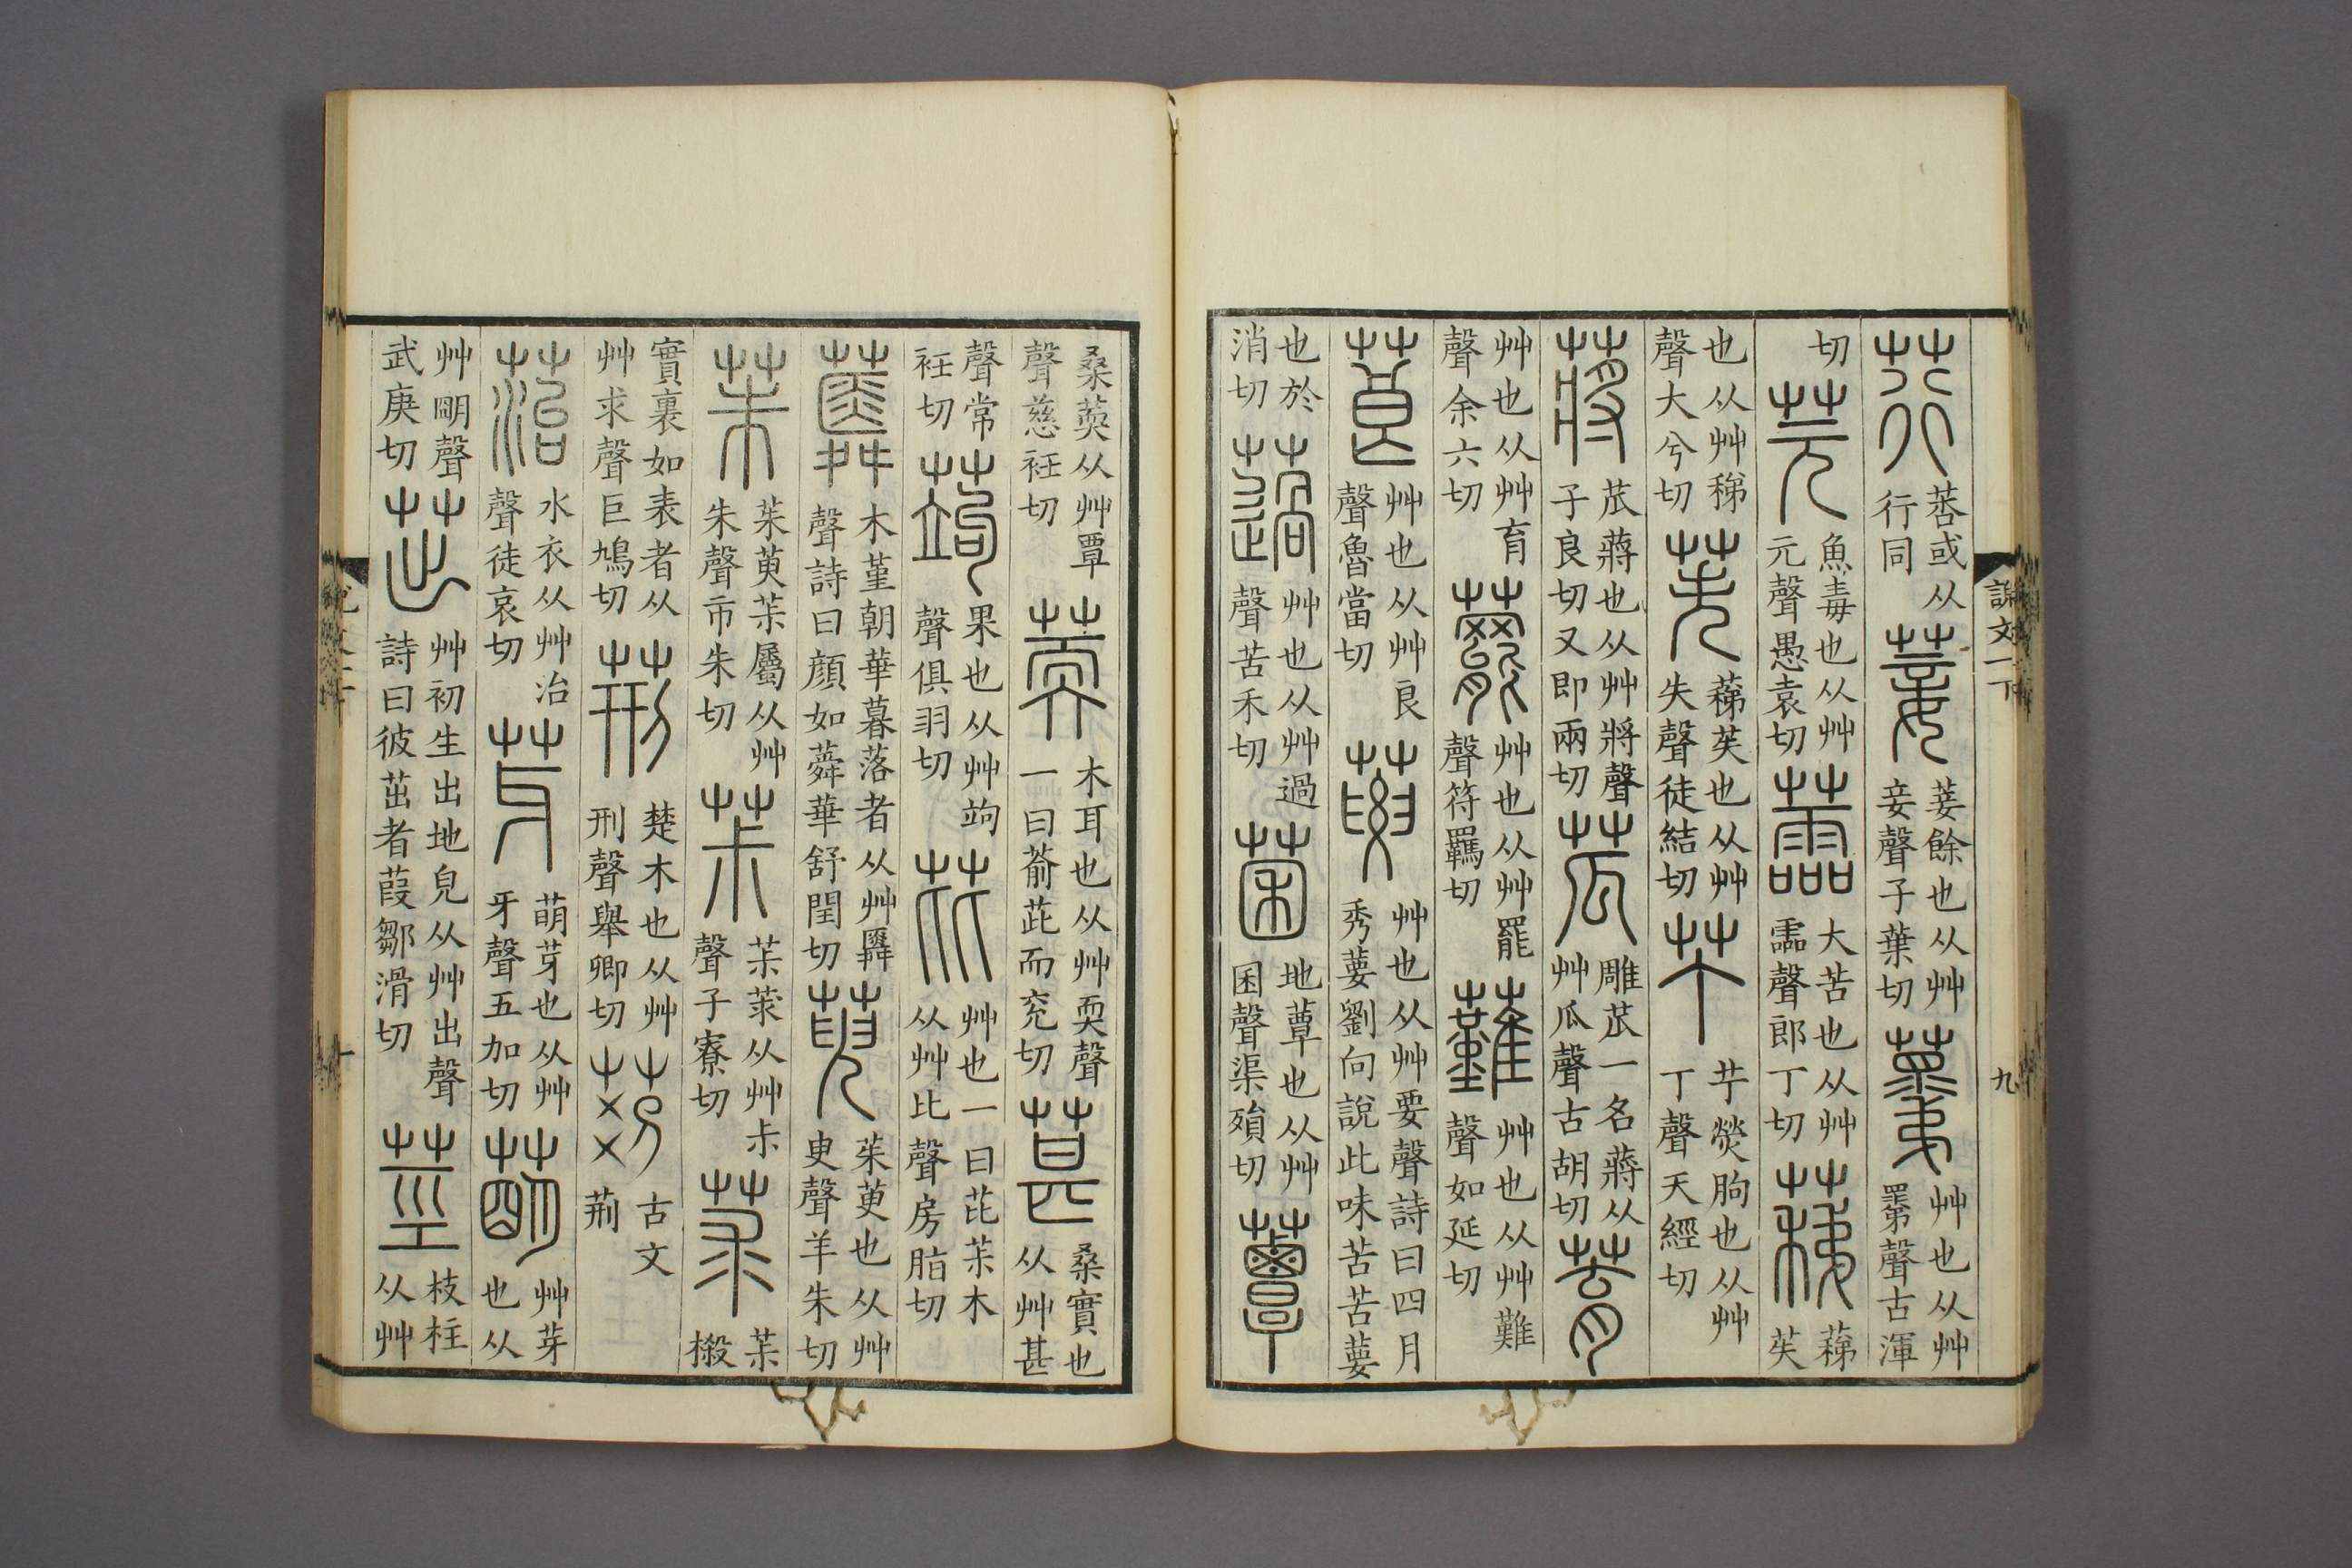 說文一下 九
荇 莕或从行同 菨 菨餘也从艸妾聲子葉切 䔂 艸也从艸𦌾聲古渾
切 芫 魚毒也从艸元聲愚袁切 蘦 大苦也从艸霝聲郎丁切 蕛 蕛苵
也从艸稊聲大兮切 苵 蕛苵也从艸失聲徒結切 艼 艼熒朐也从艸丁聲天經切
蔣 苽蔣也从艸將聲子良切又即兩切 苽 雕苽一名蔣从艸瓜聲古胡切 𦯔
艸也从艸育聲余六切 䕗 艸也从艸罷聲符羈切 虇 艸也从艸難聲如延切
莨 艸也从艸良聲魯當切 葽 艸也从艸要聲詩曰四月秀葽劉向說此味苦苦葽
也於消切 薖 艸也从艸過聲苦禾切 菌 地蕈也从艸囷聲渠殞切 蕈
桑䓴从艸覃聲慈衽切 䓴 木耳也从艸耎聲一曰萮茈而兖切 葚 桑實也从艸甚
聲常衽切 蒟 果也从艸竘聲俱羽切 芘 艸也一曰芘茮木从艸比聲房脂切
蕣 木堇朝華暮落者从艸䑞聲詩曰顏如蕣華舒閏切 萸 茱萸也从艸臾聲羊朱切
茱 茱萸茮屬从艸朱聲市朱切 茮 茮莍从艸尗聲子寮切 莍 茮樧
實裏如表者从艸求聲巨鳩切 荊 楚木也从艸刑聲舉卿切 古文荊
菭 水衣从艸治聲徒哀切 芽 萌芽也从艸牙聲五加切 萌 艸芽也从
艸朙聲武庚切 茁 艸初生出地皃从艸出聲詩曰彼茁者葭鄒滑切 莖 枝柱从艸